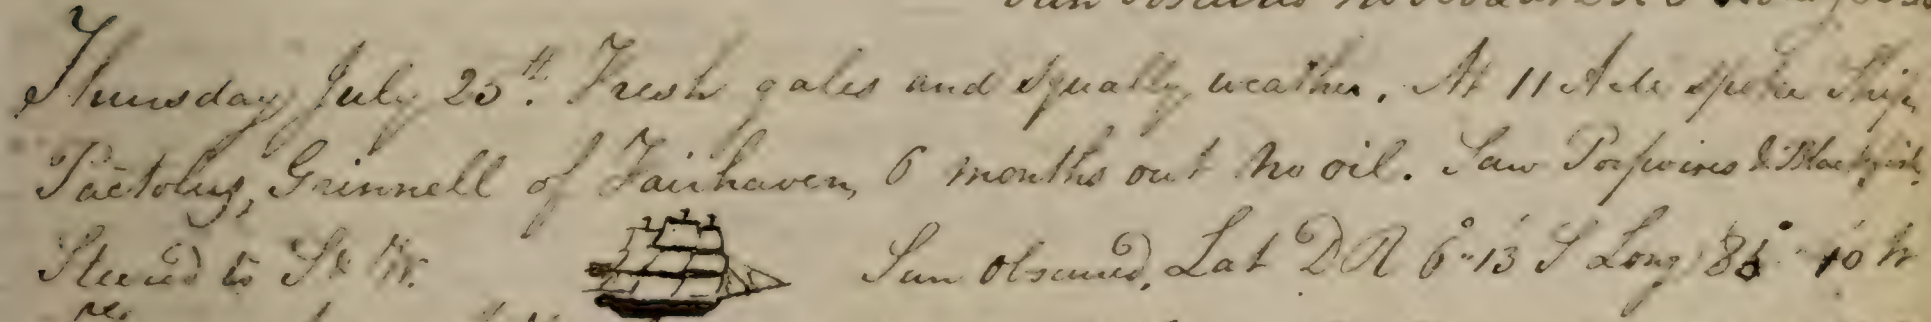 Sun obscured
Thursday July 25th. Fresh gales and squally weather. At 11 A M spoke Ship
Pactolus, Grinnell of Fairhaven, 6 months out no oil. Saw Porpoises & Blackfish.
Steered to S W. Sun Obscured, Lat D R 6°-13 S Long 85° 10 W